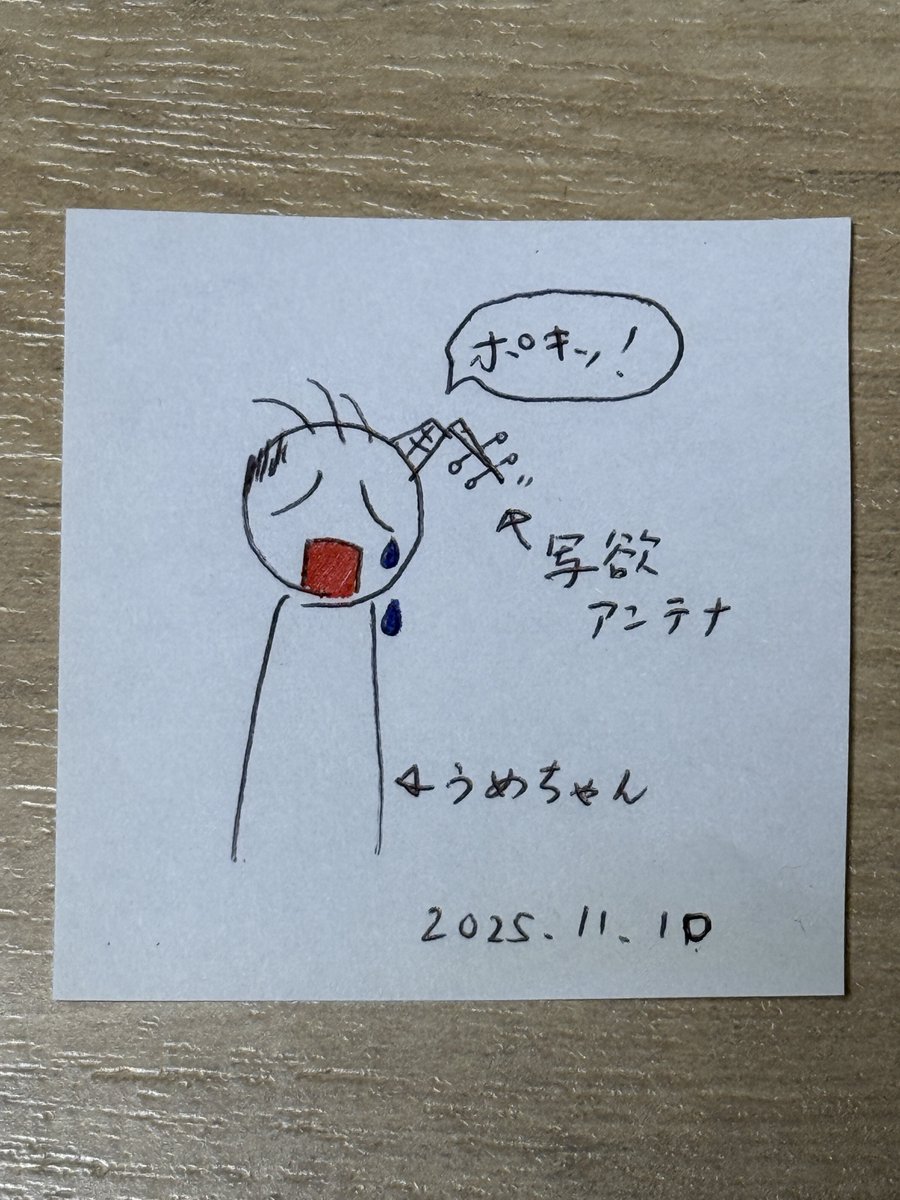 ポキッ!
写欲
アンテナ
うめちゃん
2025.11.10